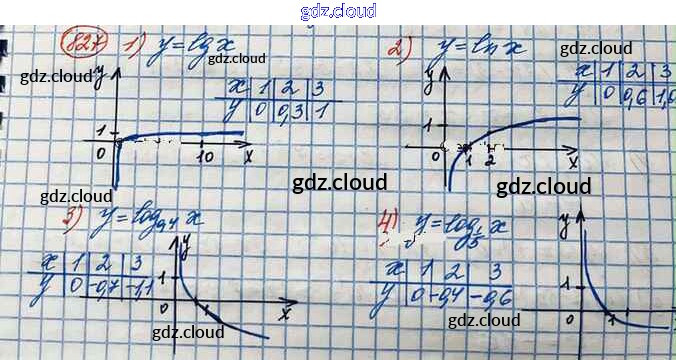 gdz.cloud
827 1) y=lg x
x 1 2 3
y 0 0,3 1
y
1
0 10 x
2) y=ln x
x 1 2 3
y 0 0,6 1,0
y
1
0 1 2 x
3) y=log₀,₄ x
x 1 2 3
y 0 -0,7 -1,1
y
1
0 x
4) y=log₁/₅ x
x 1 2 3
y 0 -0,4 -0,6
y
1
0 1
gdz.cloud
gdz.cloud
gdz.cloud
gdz.cloud
gdz.cloud
gdz.cloud
gdz.cloud
gdz.cloud
gdz.cloud
gdz.cloud